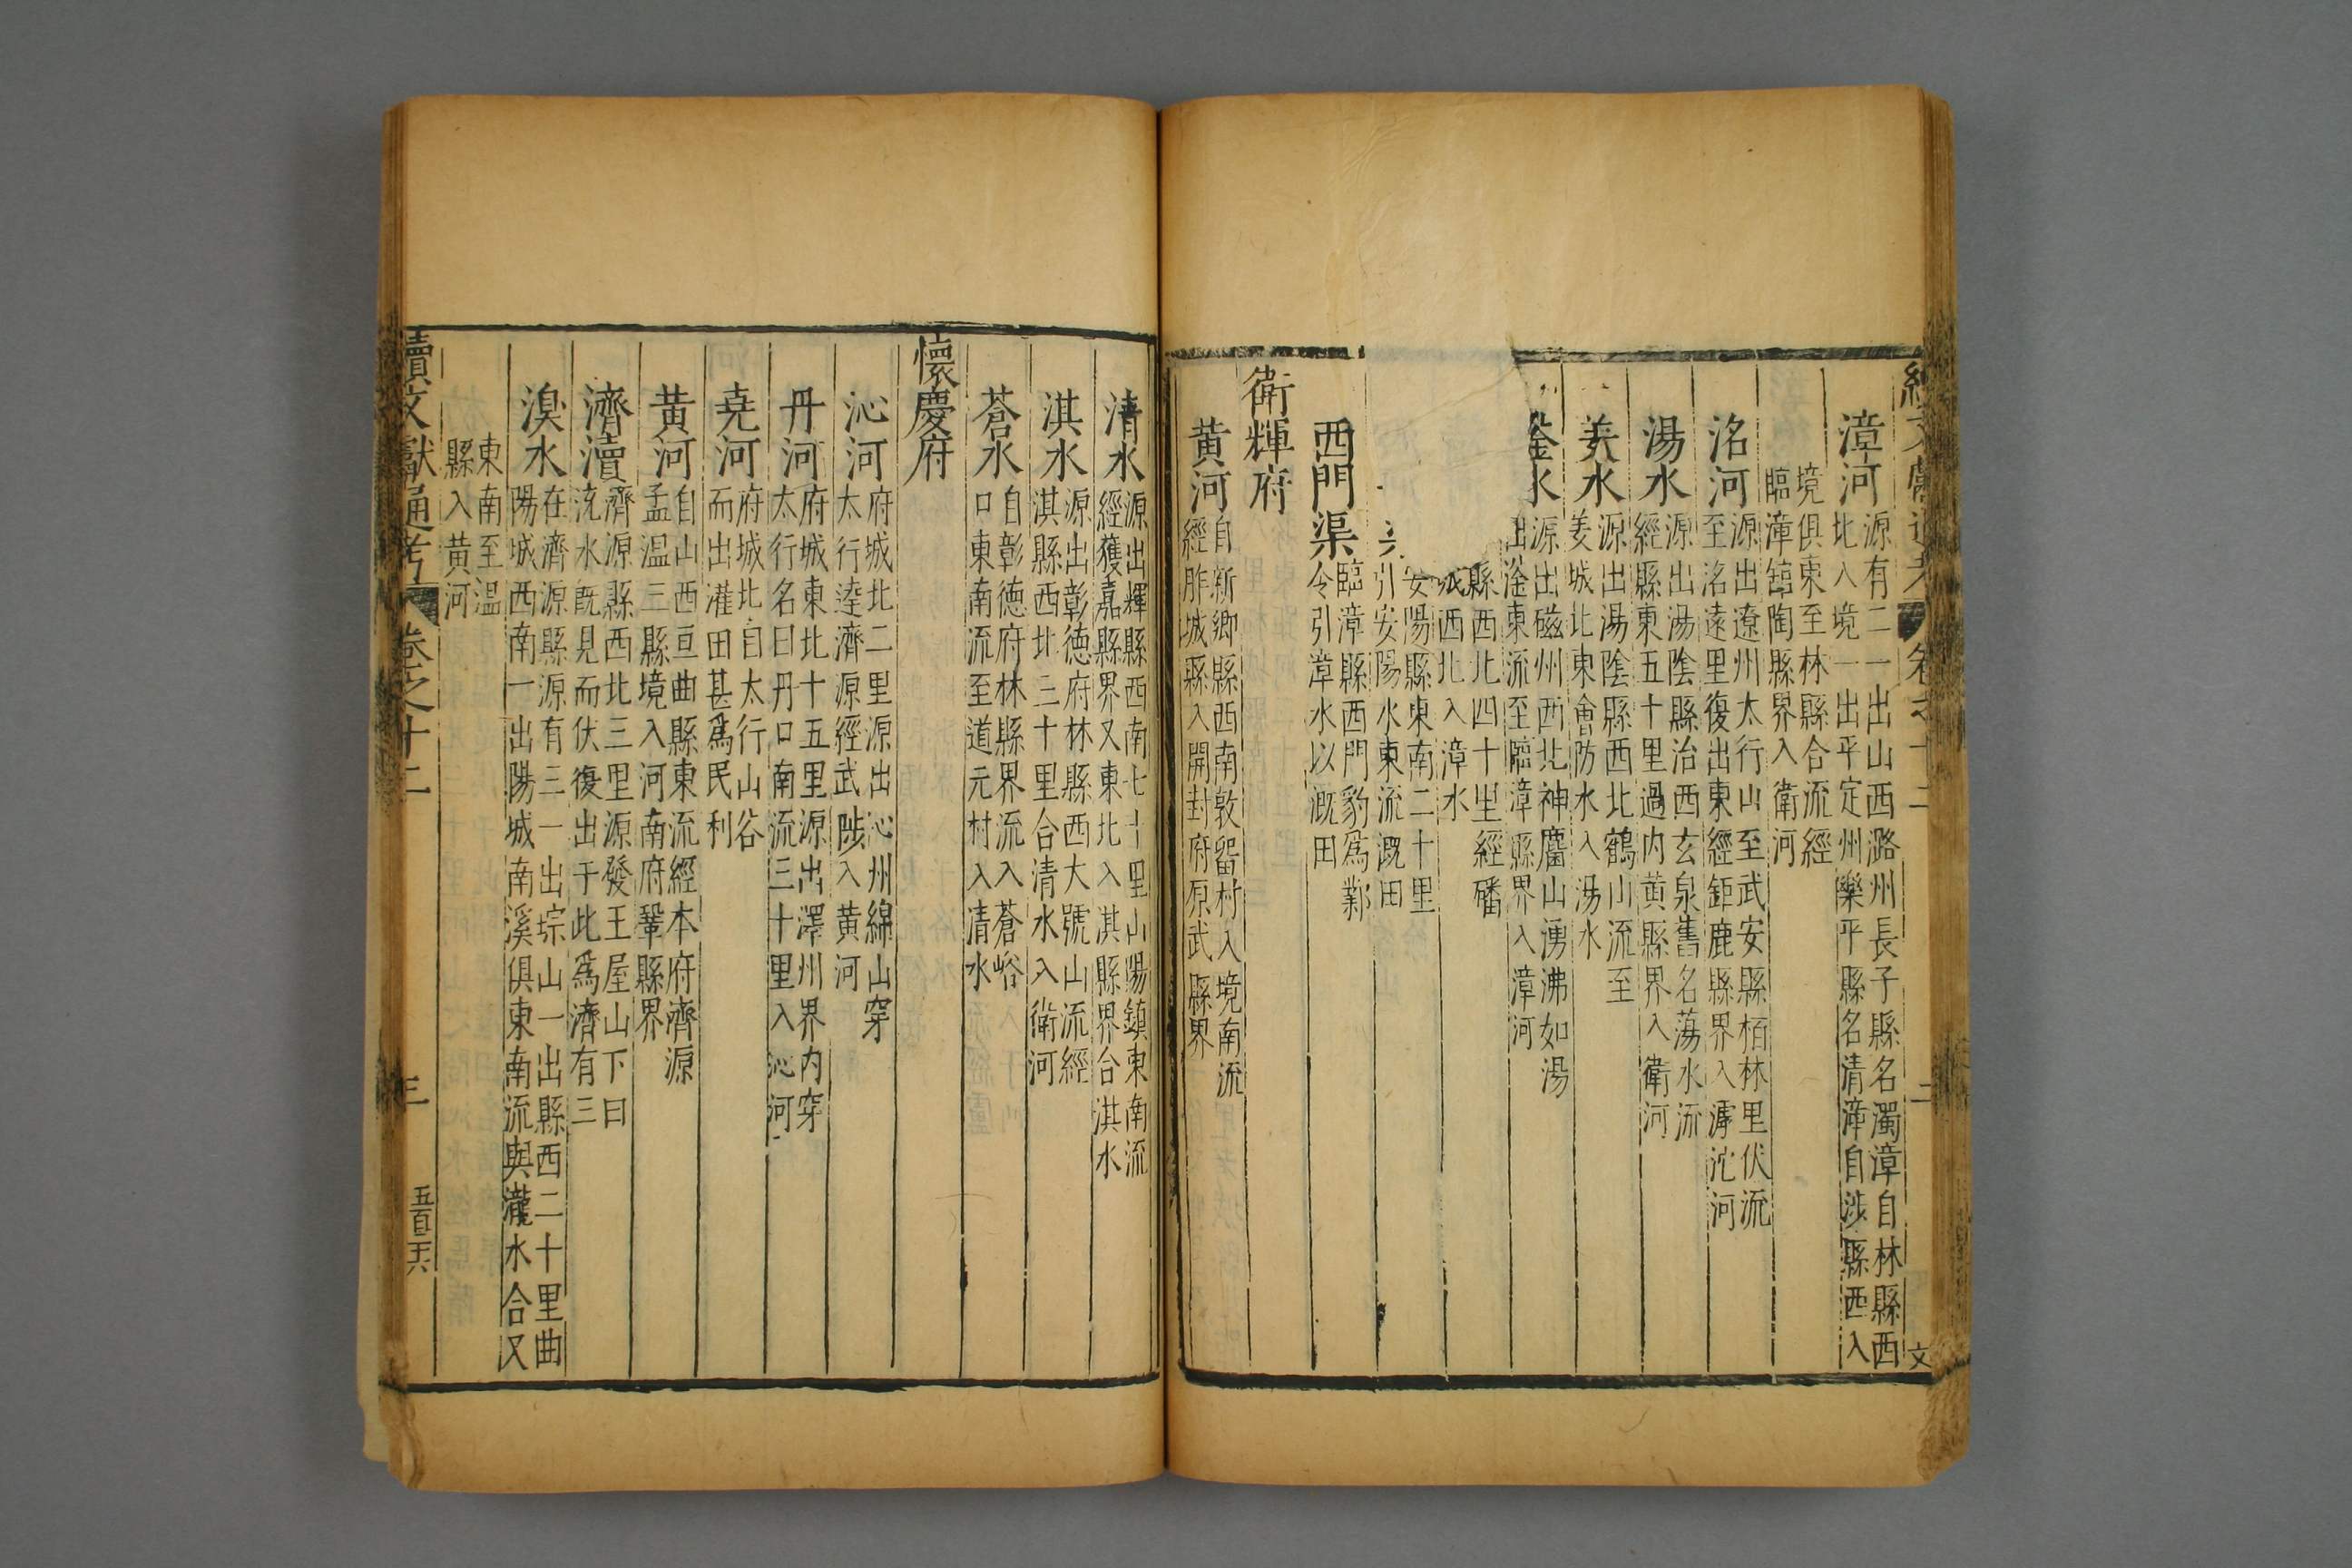 漳河 源有二一出山西潞州長子縣名濁漳自林縣西
北入境一出平定州樂平縣名清漳自涉縣西入
境俱東至林縣合流經
臨漳館陶縣界入衛河
洺河 源出遼州太行山至武安縣栢林里伏流
至洺遠里復出東經鉅鹿縣界入滹沱河
湯水 源出湯陰縣治西玄泉舊名蕩水流
經縣東五十里過内黄縣界入衛河
羑水 源出湯陰縣西北鶴山流至
羑城北東會防水入湯水
釜水 源出磁州西北神麕山湧沸如湯
出滏東流至臨漳縣界入漳河
縣西北四十里經磻
城西北入漳水
安陽縣東南二十里
引安陽水東流溉田
西門渠 臨漳縣西門豹爲鄴
令引漳水以溉田
衛輝府
黄河 自新鄉縣西南敦留村入境南流
經胙城縣入開封府原武縣界
清水 源出輝縣西南七十里山陽鎮東南流
經獲嘉縣界又東北入淇縣界合淇水
淇水 源出彰德府林縣西大號山流經
淇縣西北三十里合清水入衛河
蒼水 自彰德府林縣界流入蒼峪
口東南流至道元村入清水
懷慶府
沁河 府城北二里源出沁州綿山穿
太行逵濟源經武陟入黄河
丹河 府城東北十五里源出澤州界内穿
太行名曰丹口南流三十里入沁河
堯河 府城北自太行山谷
而出灌田甚爲民利
黄河 自山西亘曲縣東流經本府濟源
孟温三縣境入河南府鞏縣界
濟瀆 濟源縣西北三里源發王屋山下曰
沇水既見而伏復出于此爲濟有三
溴水 在濟源縣源有三一出琮山一出縣西二十里曲
陽城西南一出陽城南溪俱東南流與瀧水合又
東南至温
縣入黄河
續文獻通考 卷之十二 三 五百六